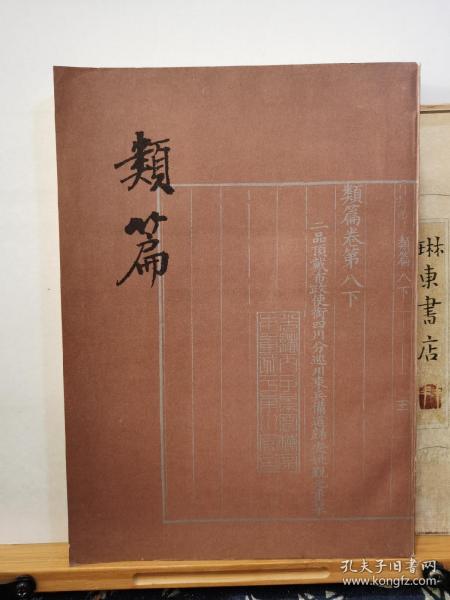 類篇
類篇卷第八下
二品頂戴布政使銜四川分巡川東兵備道歸安姚覲元重刊
類篇八下
琳東書店
孔夫子旧书网
www.kongfz.com